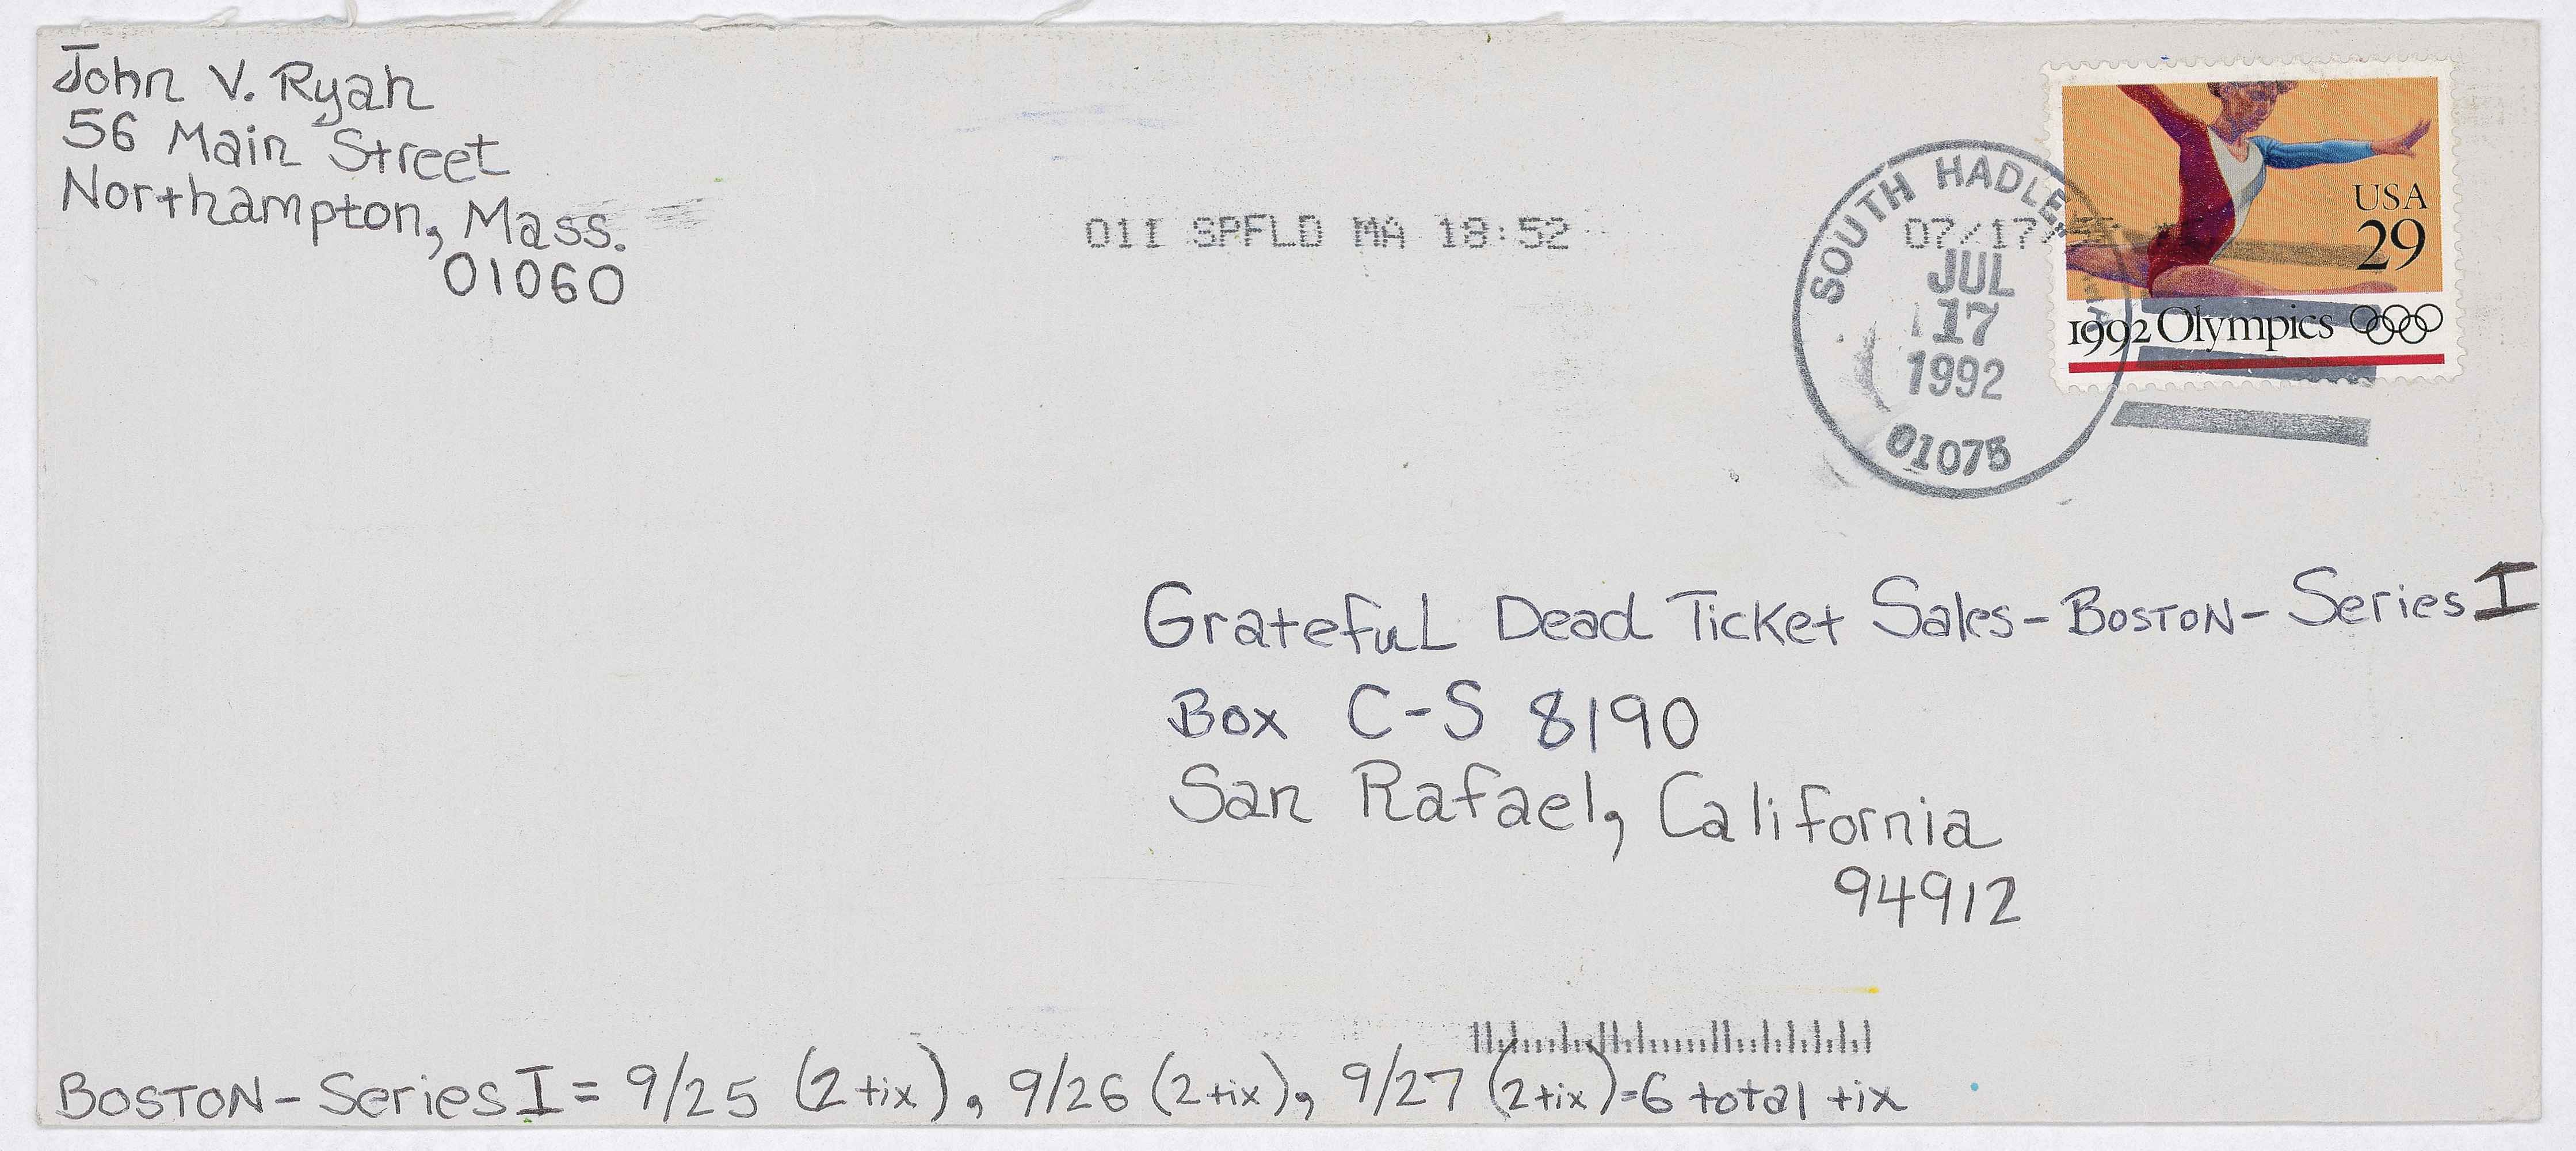 John V. Ryan
56 Main Street
Northampton, Mass.
01060
011 SPFLD MA 18:52 07/17/
SOUTH HADLEY
JUL
17
1992
01075
USA
29
1992 Olympics
Grateful Dead Ticket Sales - BOSTON - Series I
Box C-S 8190
San Rafael, California
94912
BOSTON - Series I = 9/25 (2 tix), 9/26 (2 tix), 9/27 (2 tix) = 6 total tix